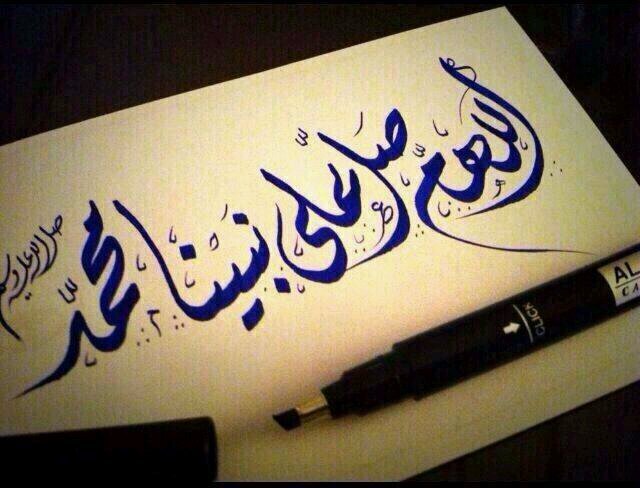 اللهم صل على نبينا محمد
صلى الله عليه وسلم
CLICK
AL
CA